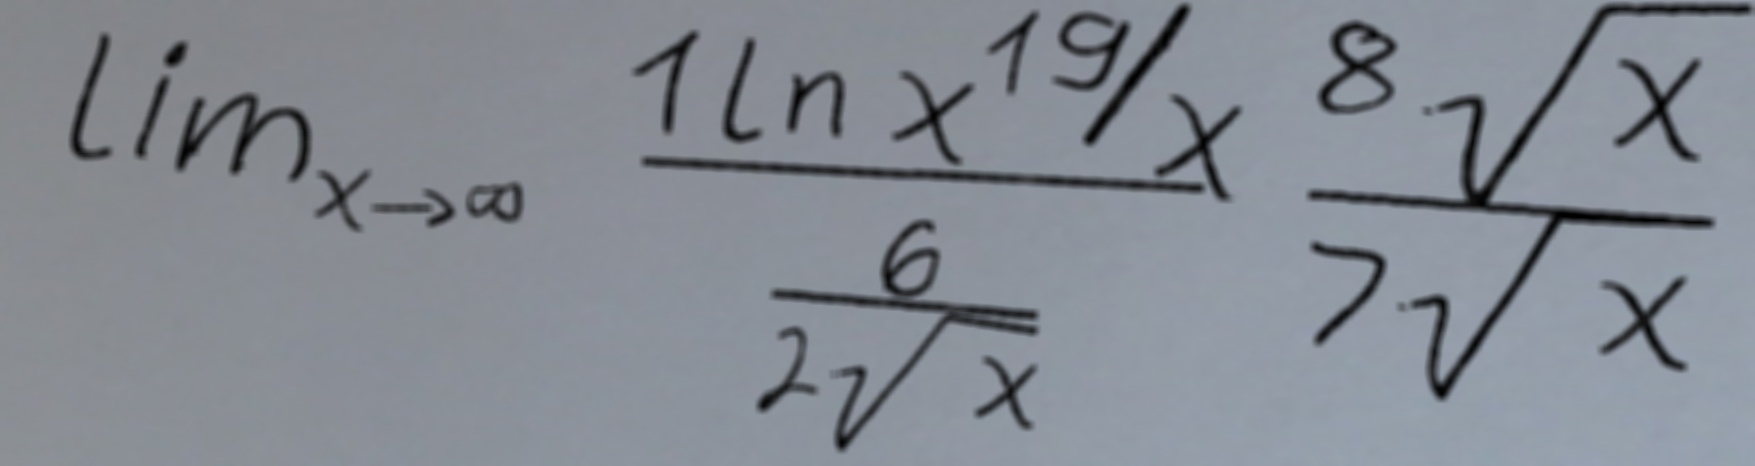 lim_{x→∞} \frac{1 ln x^{19}/x}{\frac{6}{2√x}} \frac{8√x}{7√x}